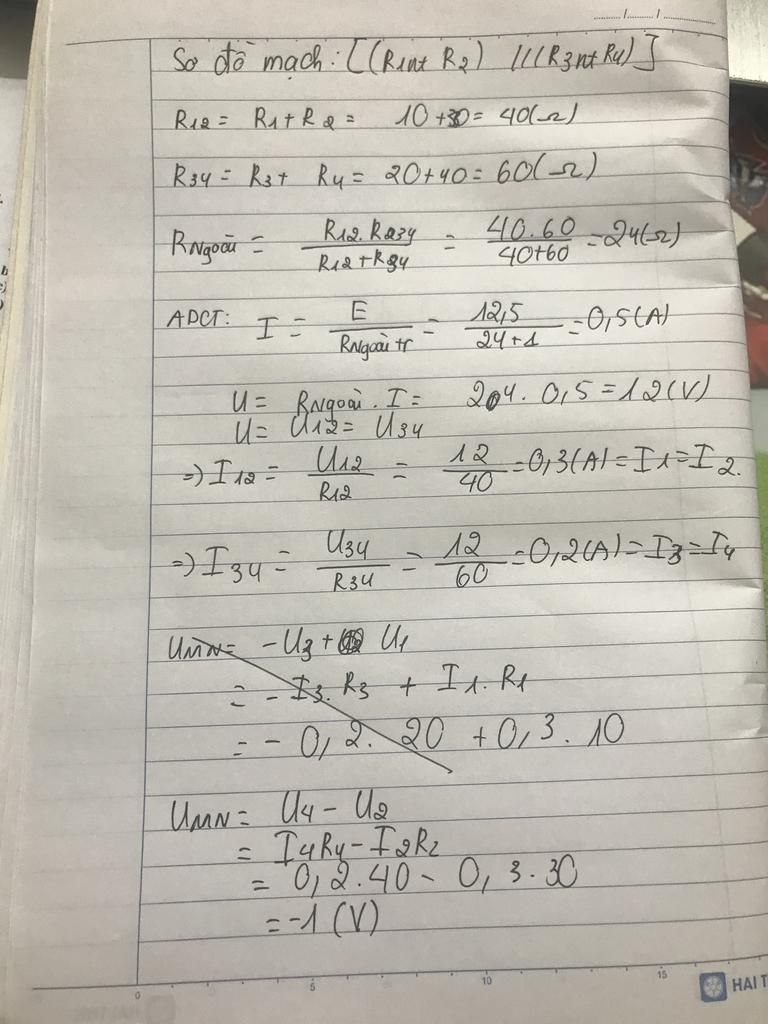 Sơ đồ mạch: [(R1nt R2) //(R3ntR4)]
R12 = R1 + R2 = 10 + 30 = 40(Ω)
R34 = R3 + R4 = 20 + 40 = 60(Ω)
RNgoài = R12.R34 / R12 + R34 = 40.60 / 40+60 = 24(Ω)
ADCT: I = E / RNgoài + r = 12,5 / 24 + 1 = 0,5(A)
U = RNgoài . I = 24 . 0,5 = 12(V)
U = U12 = U34
=> I12 = U12 / R12 = 12 / 40 = 0,3(A) = I1 = I2.
=> I34 = U34 / R34 = 12 / 60 = 0,2(A) = I3 = I4
UMN = - U3 + U1
= - I3 . R3 + I1 . R1
= - 0,2 . 20 + 0,3 . 10
UMN = U4 - U2
= I4R4 - I2R2
= 0,2.40 - 0,3.30
= -1 (V)
0 5 10 15
HAI T